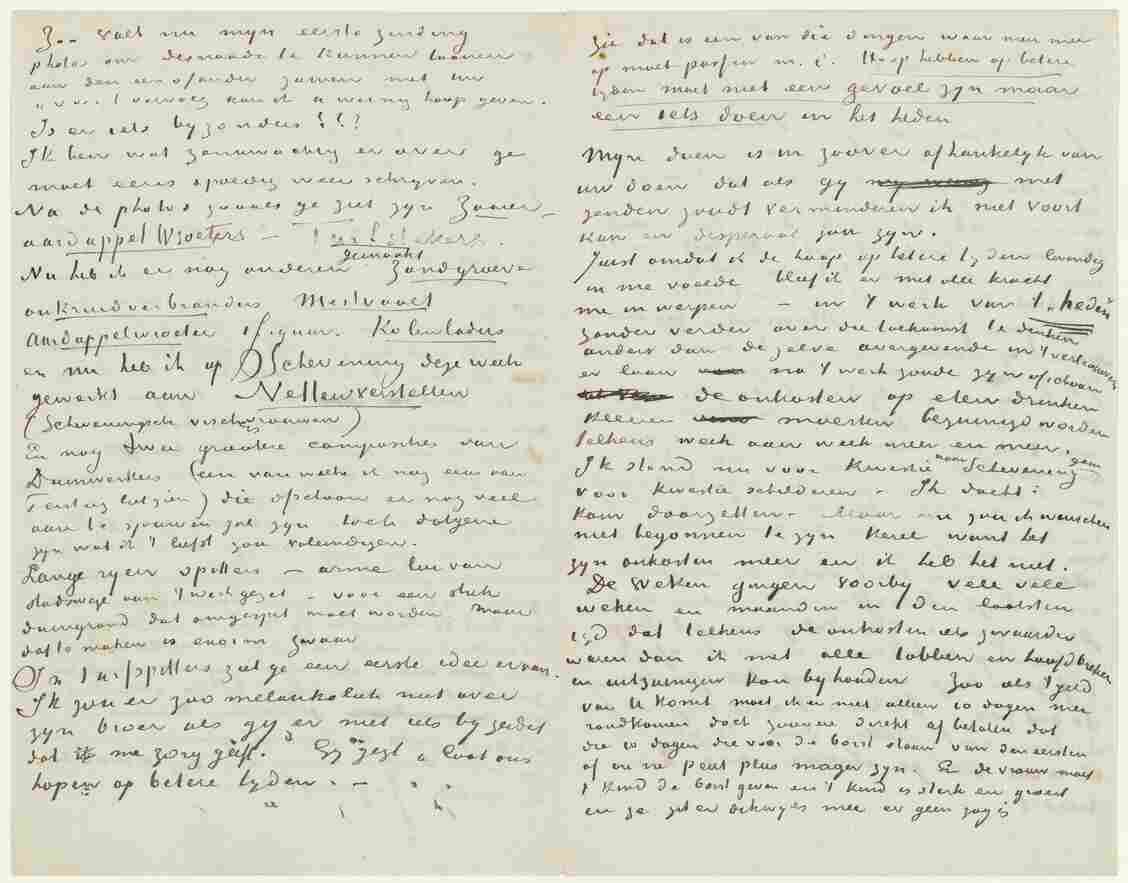 Zoo valt nu myn eerste zending
photos om desnoods te kunnen toonen
aan den een of ander samen met uw
woord vervolg kan ik u weinig hoop geven.
Is er iets byzonders!!?
Ik ben wat zenuwachtig er over ge
moet eens spoedig weer schryven.
Na de photos zooals ge ziet zyn Zaaier
aardappel Wroeters – Turfstekers.
Nu heb ik er nog anderen gemaakt Zandgroeve
onkruidverbranders Mestvaalt
aardappelwroeter 1 figuur. Kolenladers
en nu heb ik op Scheveningen deze week
gewerkt aan Nettenverstellen
(Scheveningsche visschersvrouwen)
En nog twee grootere composities van
Duinwerkers (een van welke ik nog eens aan
Tersteeg liet zien) die ofschoon er nog veel
aan te sjouwen zal zyn toch datgene
zyn wat ik 't liefst zou voleindigen.
Lange ryen spitters – arme lui van
stadswege aan 't werk gezet – voor een stuk
duingrond dat omgespit moet worden. Maar
dat te maken is enorm zwaar
In turfspitters ziet ge een eerste idee ervan.
Ik zou er zoo melankoliek niet over
zyn broer als gy er niet iets by zeidet
dat me zorg geeft. Gy zegt „laat ons
hopen op betere tyden." –
Zie dat is een van die dingen waar men mee
op moet passen m. i. Hoop hebben op betere
tyden moet niet een gevoel zyn maar
een iets doen in het heden
Myn doen is in zoover afhankelyk van
uw doen dat als gy met
zenden zoudt verminderen ik niet voort
kan en desperaat zou zyn.
Juist omdat ik de hoop op betere tyden levendig
in me voelde bleef ik er met alle kracht
me in werpen – in 't werk van 't heden
zonder verder over die toekomst te denken
anders dan de zelve overgevende in 't vertrouwen
er loon na 't werk zoude zyn ofschoon
de onkosten op eten drinken
kleeren moesten bezuinigd worden
telkens week aan week meer en meer.
Ik stond nu voor kwestie naar Scheveningen gaan
voor kwestie schilderen. Ik dacht:
kom doorzetten. Maar nu zou ik wenschen
niet begonnen te zyn kerel want het
zyn onkosten meer en ik heb het niet.
De weken gingen voorby vele vele
weken en maanden in den laatsten
tyd dat telkens de onkosten iets zwaarder
waren dan ik met alle tobben en hoofdbreken
en uitzuinigen kon byhouden Zoo als 't geld
van U komt moet ik er niet alleen 10 dagen mee
rondkomen doch zooveel direkt af betalen dat
die 10 dagen die voor de borst staan van den eersten
af on ne peut plus mager zyn. En de vrouw moet
't kind de borst geven en 't kind is sterk en groeit
en ze zit er dikwyls mee er geen zog is